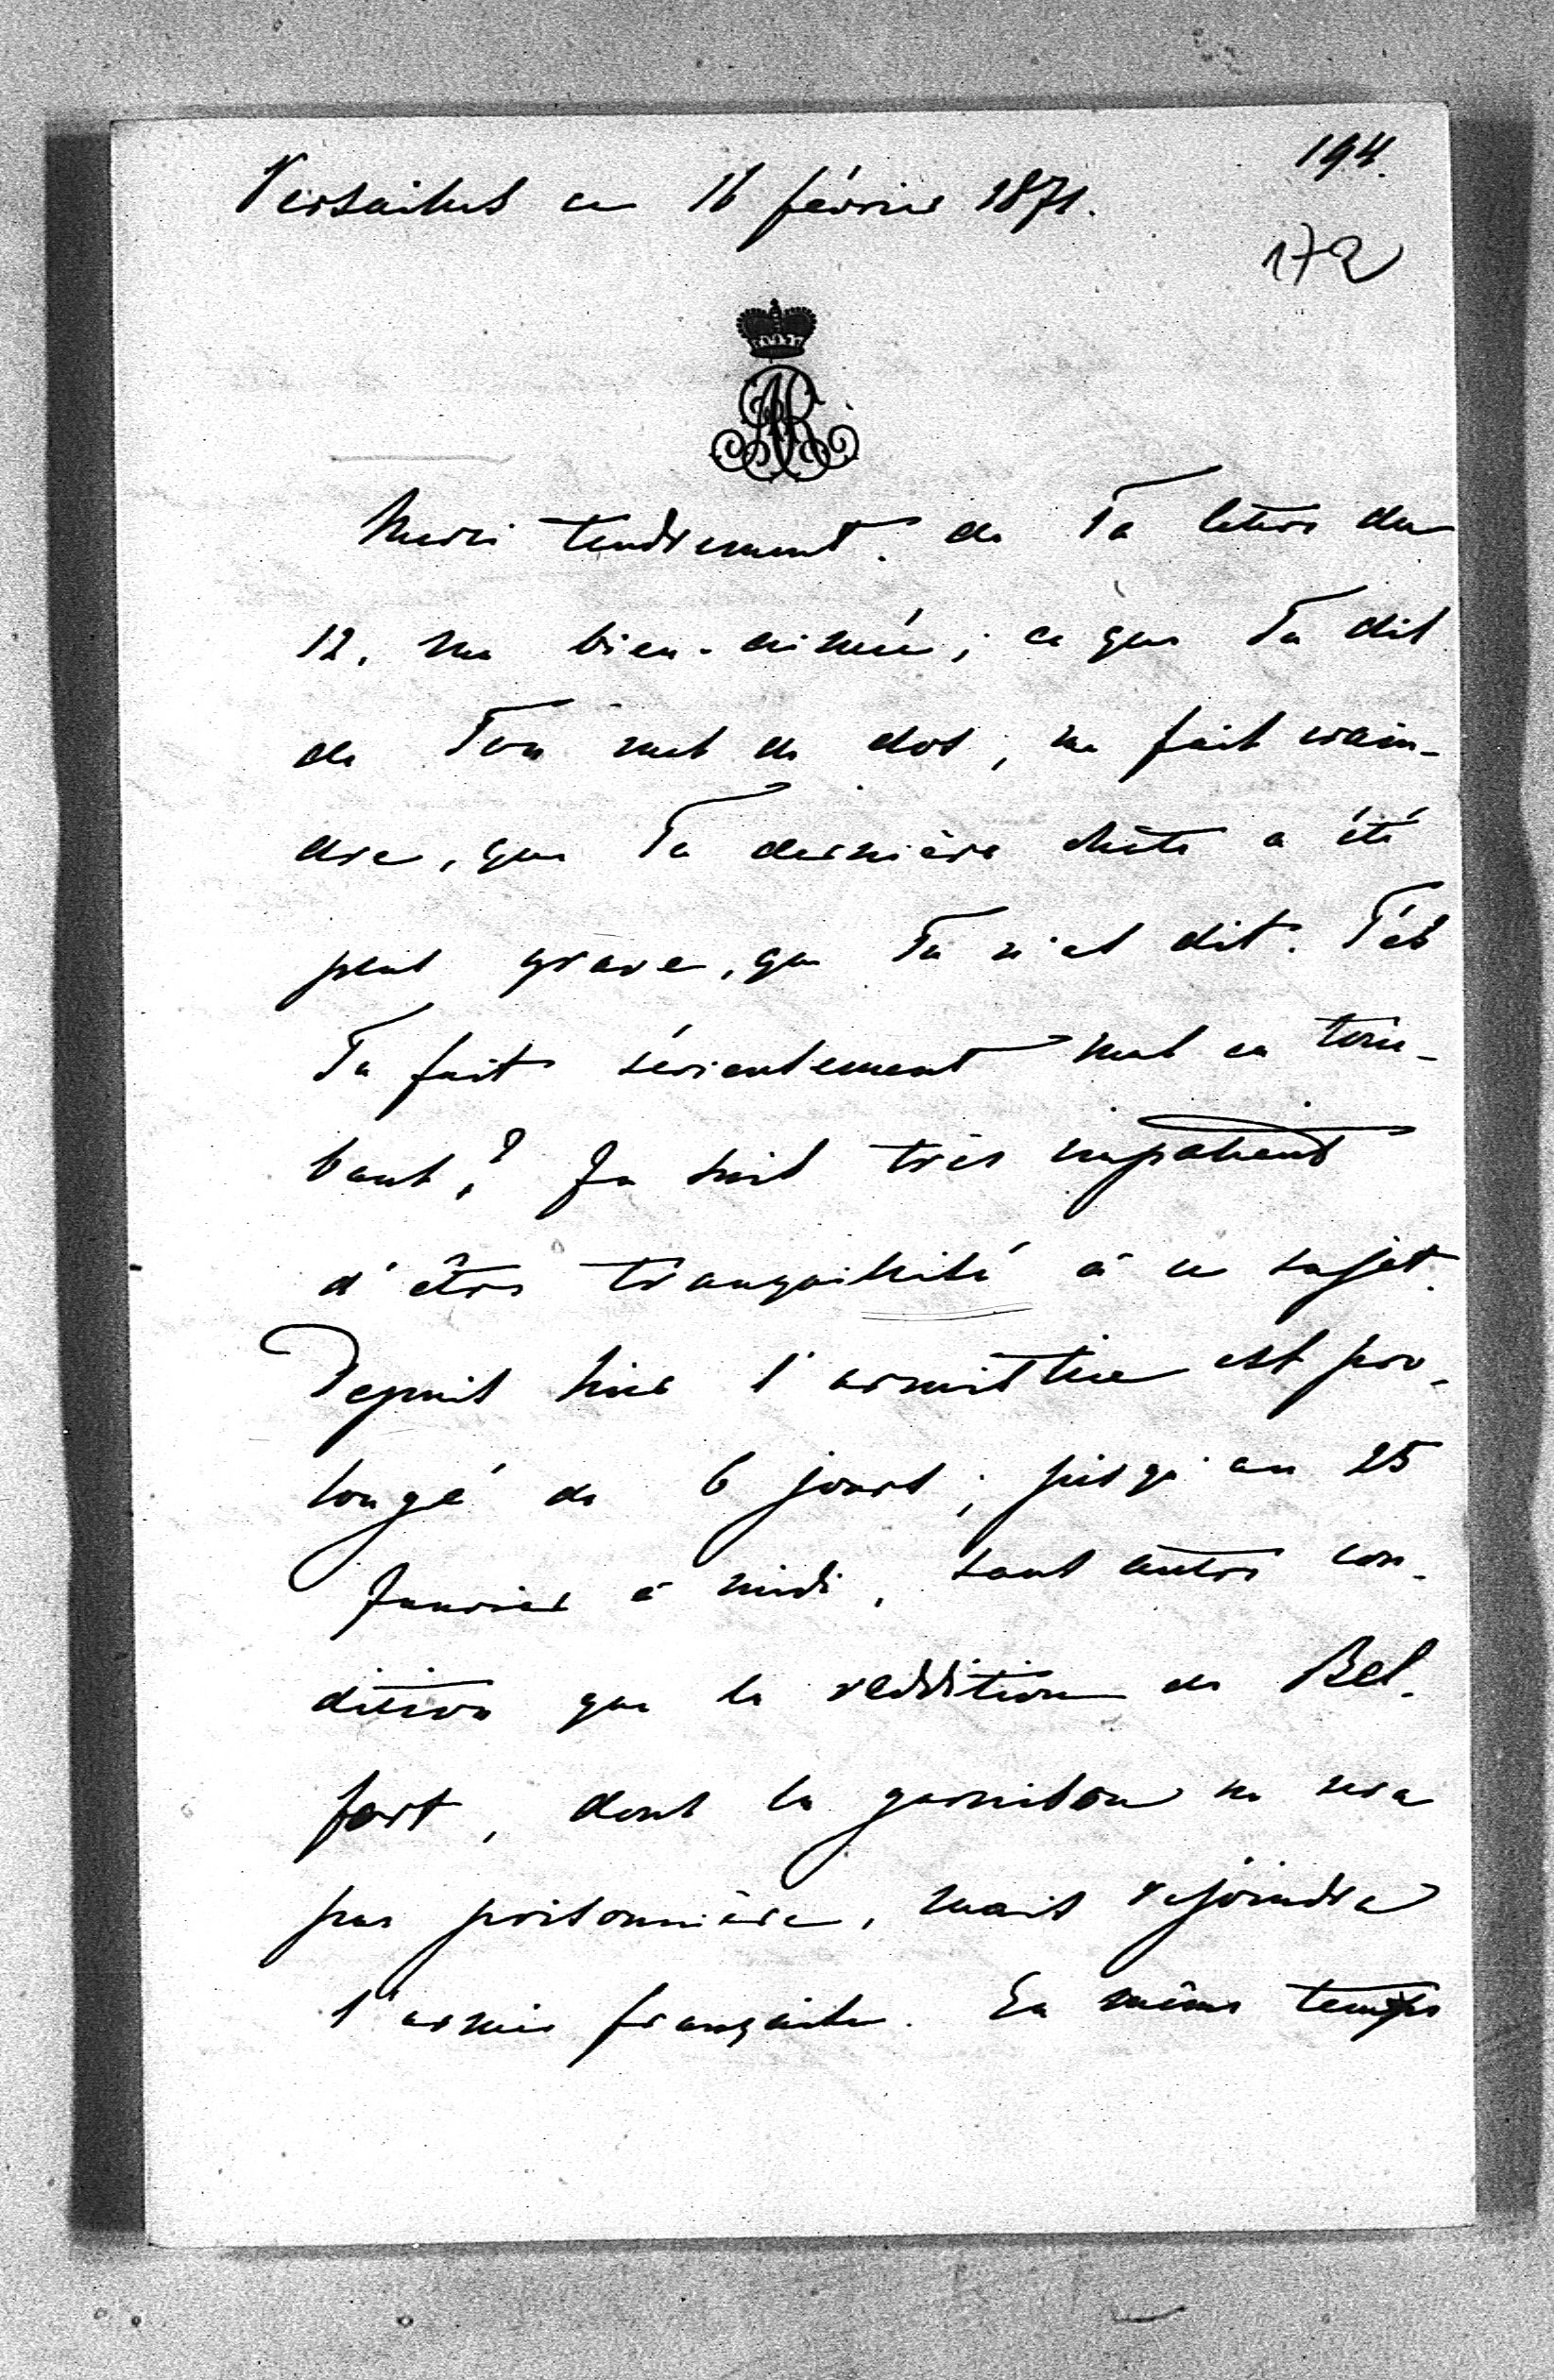 194.
Versailles ce 16 février 1871.
172
AR
Merci tendrement de Ta lettre du
12, ma bien-aimée; ce que Tu dis
de Ton mal de dos, me fait crain-
dre, que Ta dernière chûte a été
plus grave, que Tu n'as dit. T'es
Tu fait sérieusement mal en tom-
bant? Je suis très impatient
d'être tranquilisé à ce sujet.
Depuis hier l'armistice est pro-
longé de 6 jours, jusqu'au 25
Janvier à midi, sans autre con-
dition que la reddition de Bel-
fort, dont la garnison ne sera
pas prisonnière, mais rejoindra
l'armée française. En même temps